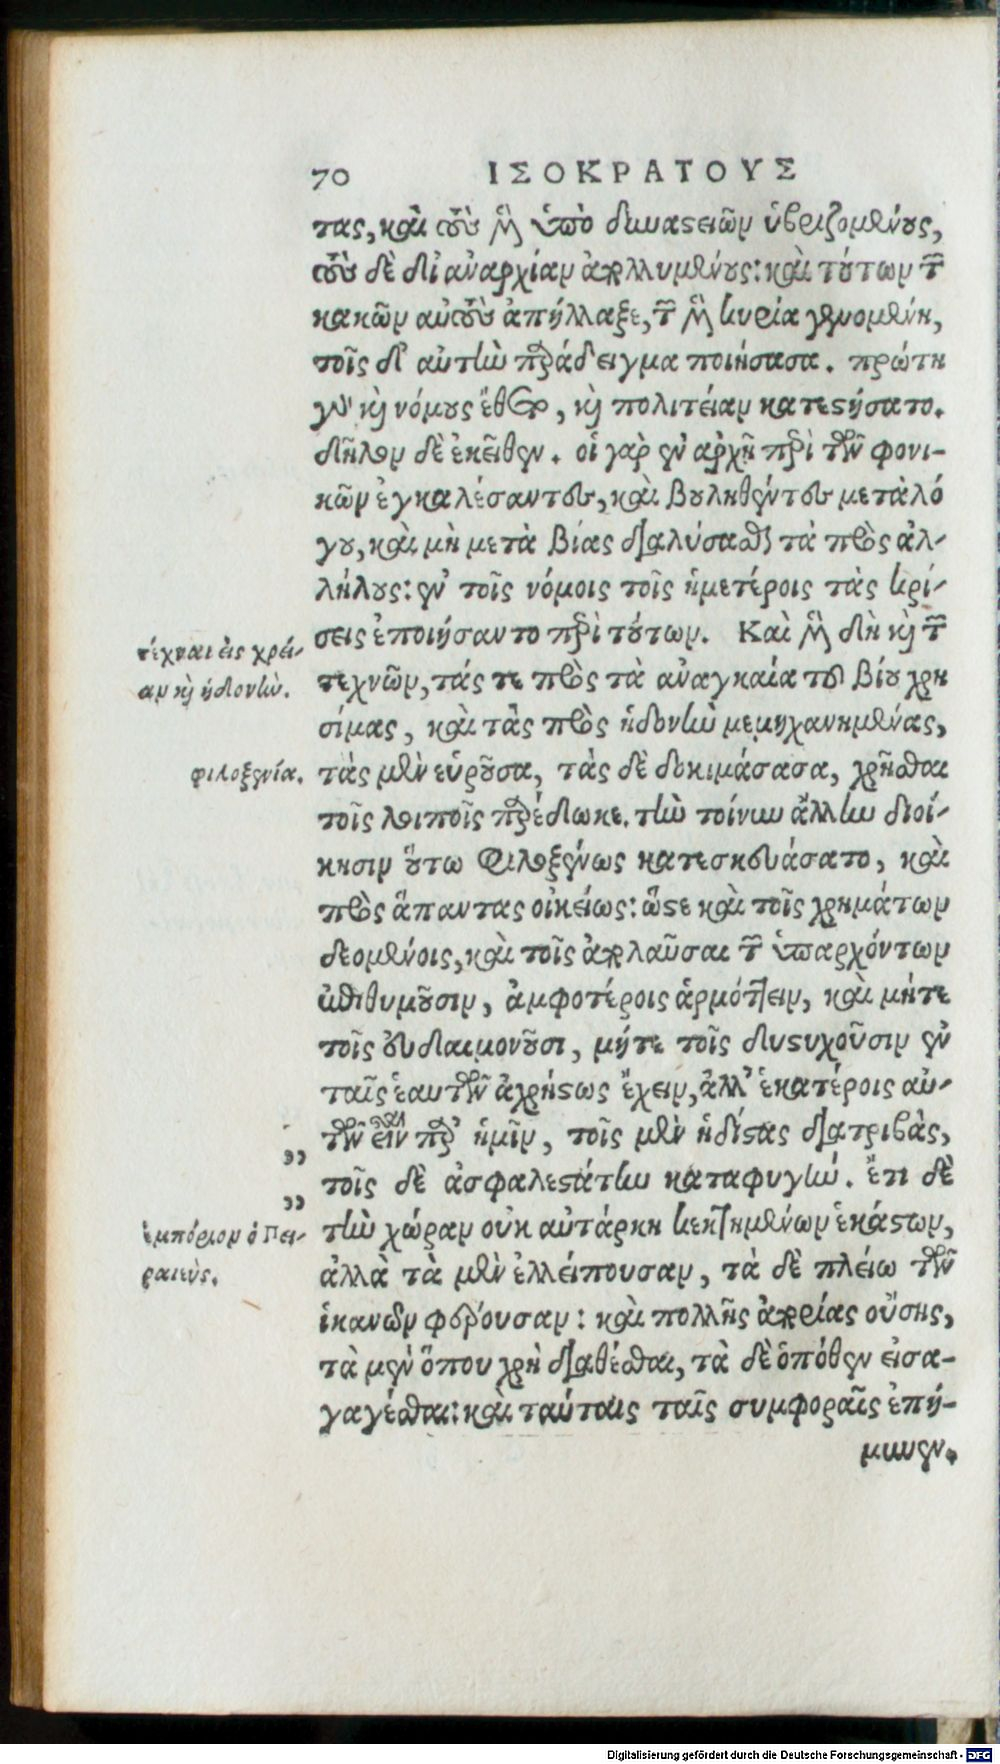 70 ΙΣΟΚΡΑΤΟΥΣ
τας, καὶ τοὺς μὲν ὑπὸ δυναστειῶν ὑβριζομένους,
τοὺς δὲ δι' ἀναρχίαν ἀπολλυμένους: καὶ τούτων τῶν
κακῶν αὐτοὺς ἀπήλλαξε, τῶν μὲν κυρία γενομένη,
τοῖς δ' αὑτὴν παράδειγμα ποιήσασα. πρώτη
γὰρ καὶ νόμους ἔθετο, καὶ πολιτείαν κατεστήσατο.
δῆλον δὲ ἐκεῖθεν. οἱ γὰρ ἐν ἀρχῇ περὶ τῶν φονι-
κῶν ἐγκαλέσαντες, καὶ βουληθέντες μετὰ λό
γου, καὶ μὴ μετὰ βίας διαλύσασθαι τὰ πρὸς ἀλ-
λήλους: ἐν τοῖς νόμοις τοῖς ἡμετέροις τὰς κρί-
σεις ἐποιήσαντο περὶ τούτων. Καὶ μὲν δὴ καὶ τῶν
τέχναι εἰς χρεί-
αν καὶ ἡδονήν.
τεχνῶν, τάς τε πρὸς τὰ ἀναγκαία τοῦ βίου χρη
σίμας, καὶ τὰς πρὸς ἡδονὴν μεμηχανημένας,
φιλοξενία.
τὰς μὲν εὑροῦσα, τὰς δὲ δοκιμάσασα, χρῆσθαι
τοῖς λοιποῖς παρέδωκε. τὴν τοίνυν ἄλλην διοί-
κησιν οὕτω φιλοξένως κατεσκευάσατο, καὶ
πρὸς ἅπαντας οἰκείως: ὥστε καὶ τοῖς χρημάτων
δεομένοις, καὶ τοῖς ἀπολαῦσαι τῶν ὑπαρχόντων
ἐπιθυμοῦσιν, ἀμφοτέροις ἁρμόττειν, καὶ μήτε
τοῖς εὐδαιμονοῦσι, μήτε τοῖς δυστυχοῦσιν ἐν
ταῖς ἑαυτῶν ἀχρήστως ἔχειν, ἀλλ' ἑκατέροις αὐ-
τῶν εἶναι παρ' ἡμῖν, τοῖς μὲν ἡδίστας διατριβὰς,
τοῖς δὲ ἀσφαλεστάτην καταφυγήν. ἔτι δὲ
ἐμπόριον ὁ Πει-
ραιεύς.
τὴν χώραν οὐκ αὐτάρκη κεκτημένων ἑκάστων,
ἀλλὰ τὰ μὲν ἐλλείπουσαν, τὰ δὲ πλείω τῶν
ἱκανῶν φέρουσαν: καὶ πολλῆς ἀπορίας οὔσης,
τὰ μὲν ὅπου χρὴ διαθέσθαι, τὰ δὲ ὁπόθεν εἰσα-
γαγέσθαι: καὶ ταύταις ταῖς συμφοραῖς ἐπή-
μυνεν.
Digitalisierung gefördert durch die Deutsche Forschungsgemeinschaft - DFG